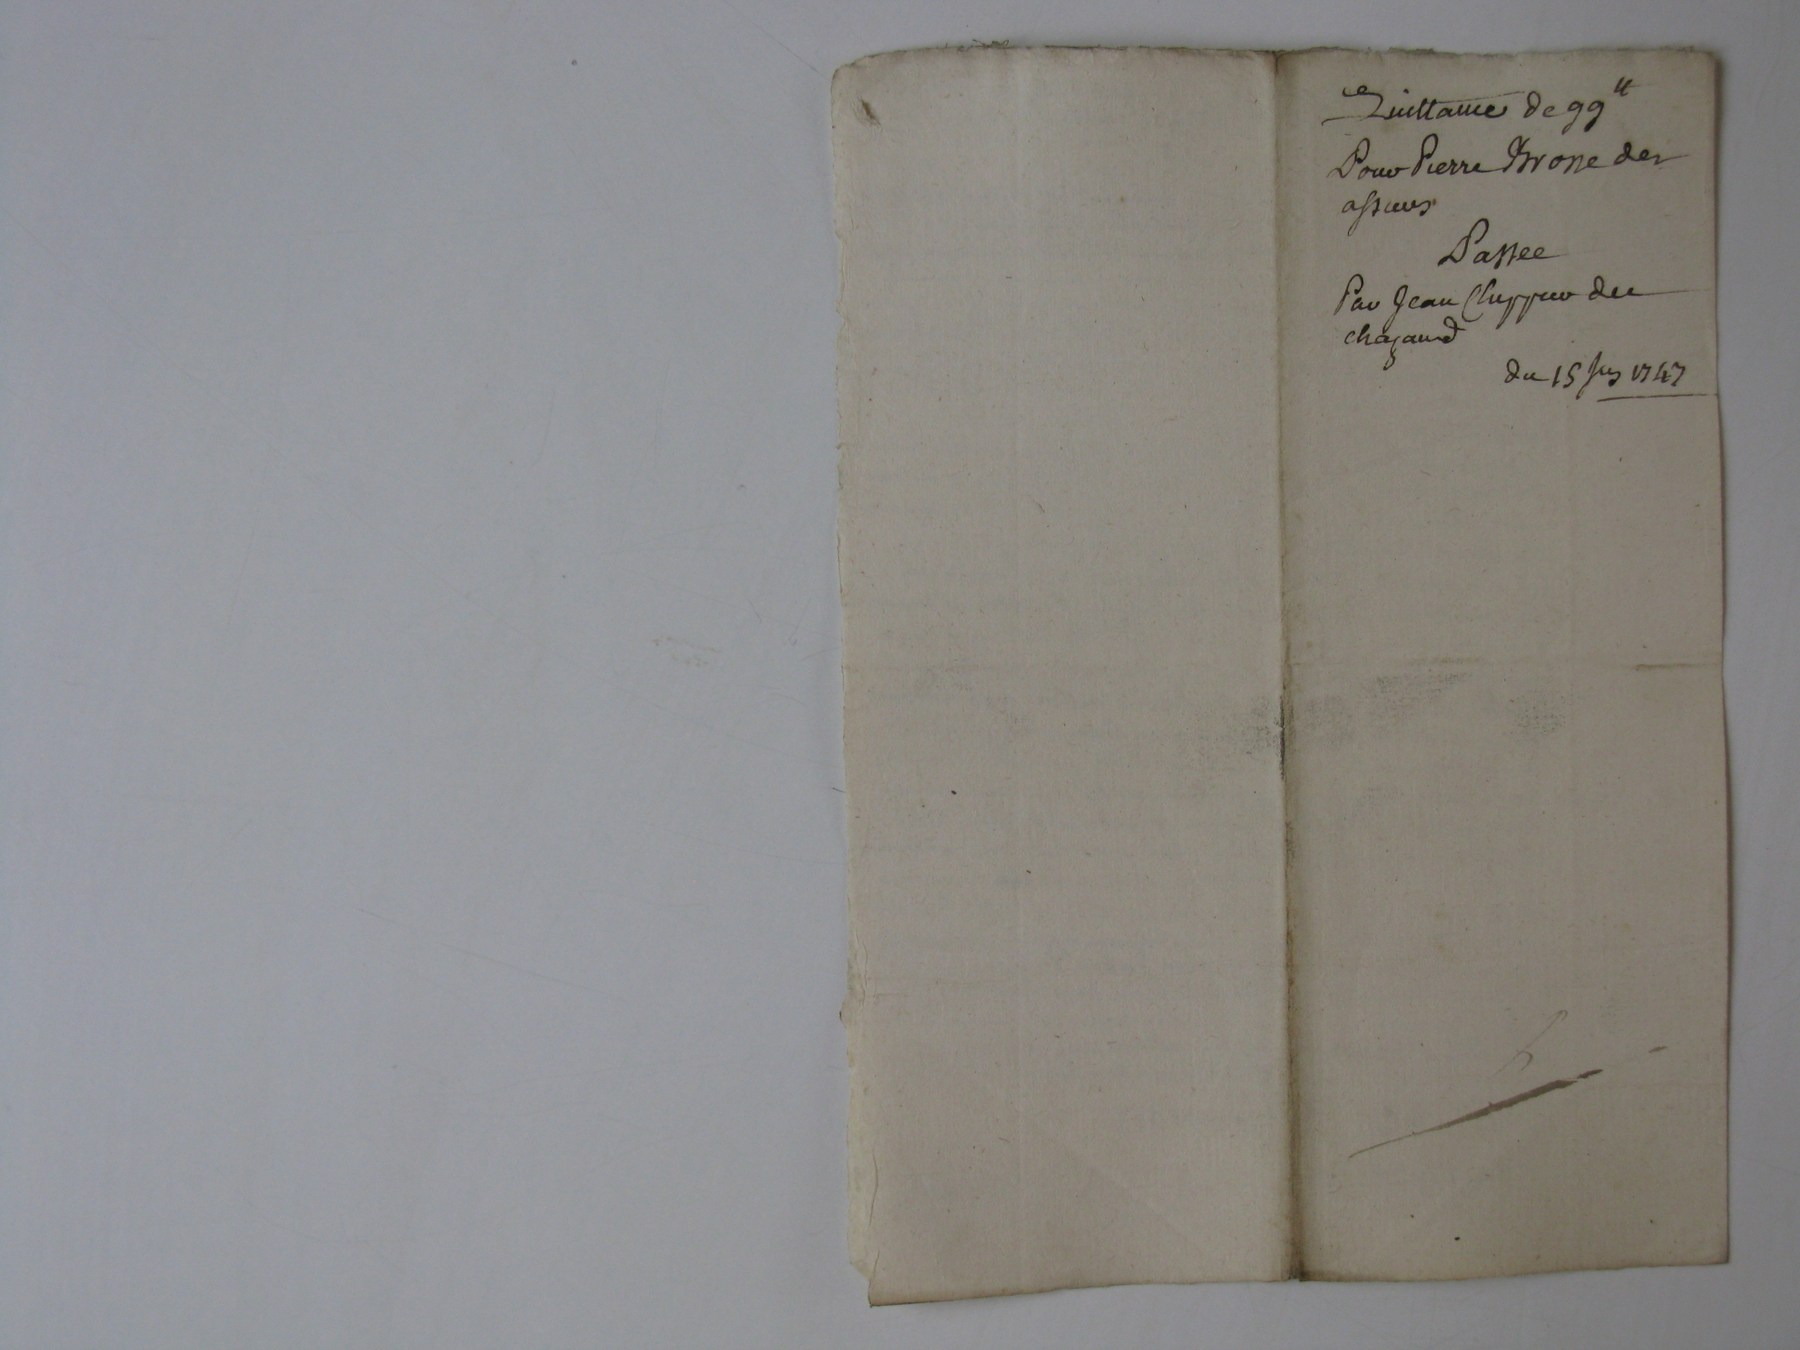 Quittance de 99 tt
Pour Pierre Brosse des
assieurs
Passee
Par Jean Clupper du
chazaud
du 15 1747